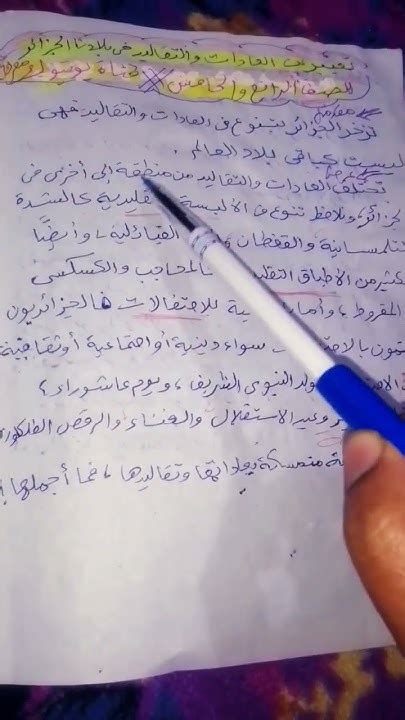 تعبير عن العادات والتقاليد في بلادنا الجزائر
للصف الرابع والخامس
تزخر الجزائر بتنوع في العادات والتقاليد فهي
ليست كباقي بلاد العالم.
تختلف العادات والتقاليد من منطقة إلى أخرى في
الجزائر، ونلاظ تنوع في الألبسة التقليدية كالشدة
التلمسانية والقفطان القبائلية، وأيضًا
كثير من الأطباق كالمحاجب والكسكسي
المقروط، وأما للاحتفالات فالجزائريون
سواء دينية أو اجتماعية أو ثقافية
المولد النبوي الشريف، ويوم عاشوراء،
وعيد الاستقلال والغناء والرقص الفلكلوري
متمسكة بعاداتها وتقاليدها، فما أجملها